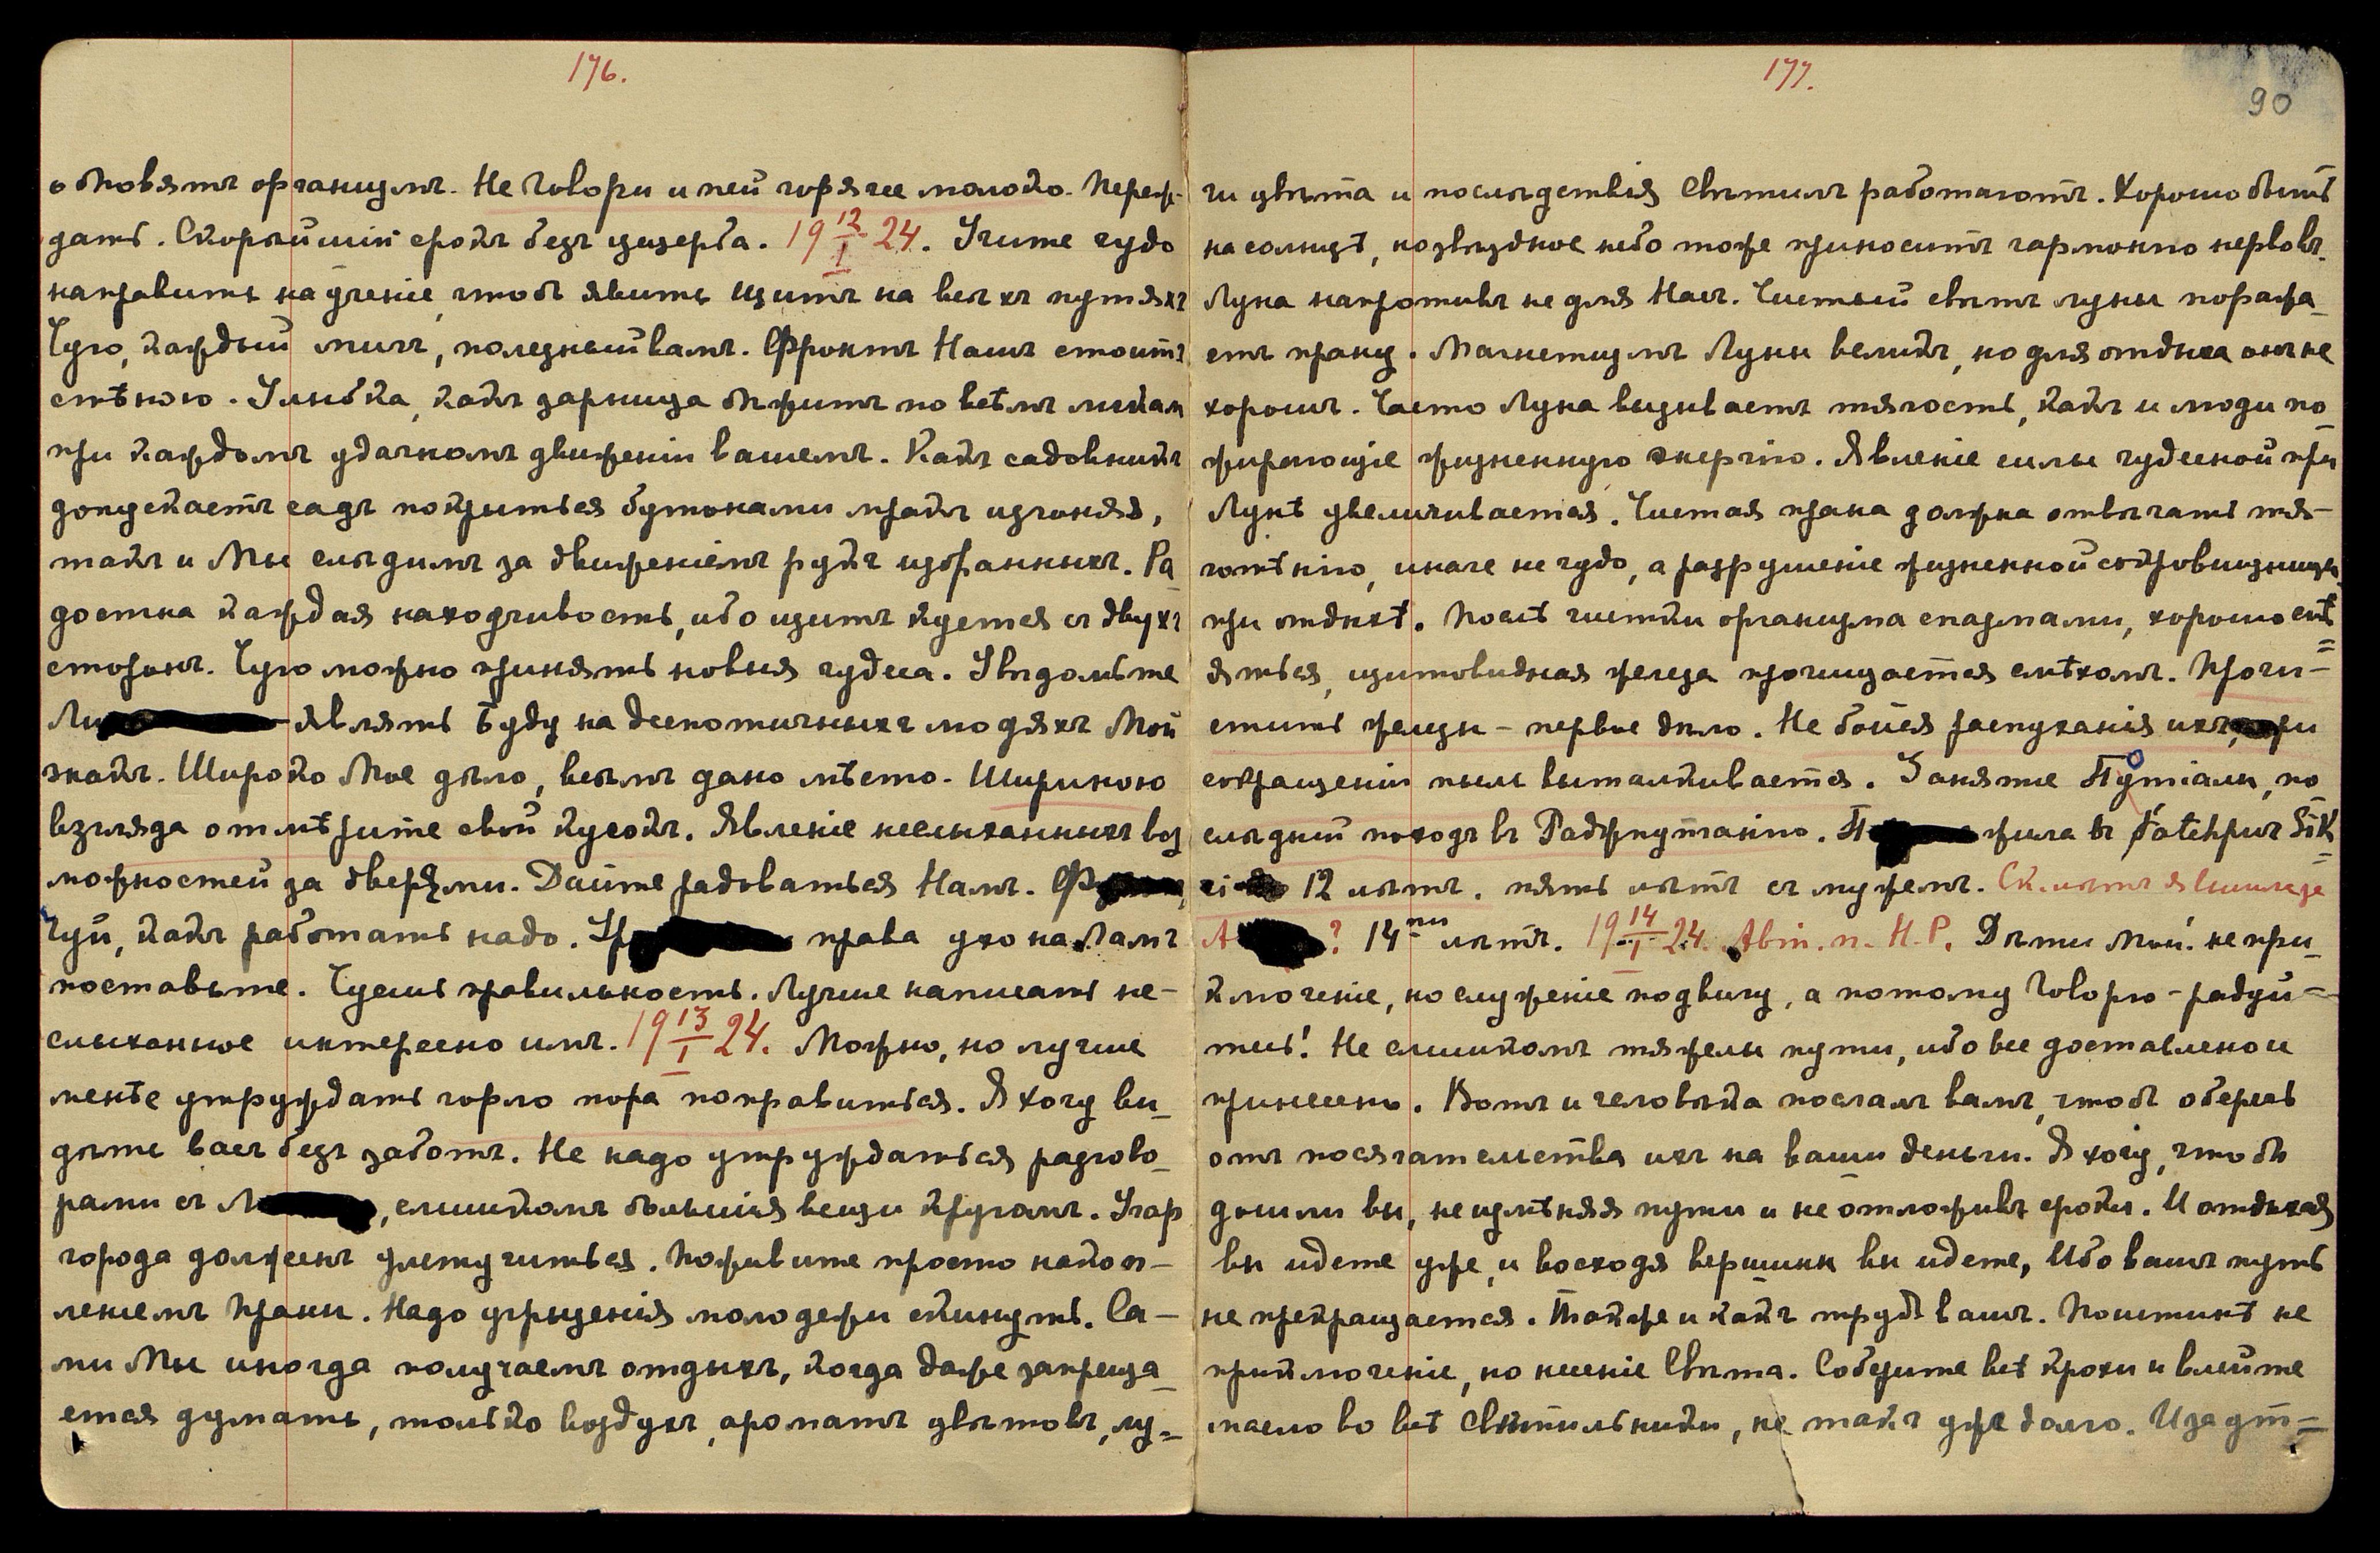 176.
обновятъ организмъ. Не говори и пей горячее молоко. Переж-
дать. Скорѣйшій срокъ безъ ущерба. 19 12/I 24. Учите чудо
направить на ученіе, чтобъ явить щитъ на всѣхъ путяхъ
Чую, каждый мигъ, полезный вамъ. Фронтъ Нашъ стоитъ
стѣною. Улыбка, какъ зарница бѣжитъ по всѣмъ ликам
при каждомъ удачномъ движеніи вашемъ. Какъ садовникъ
допускаетъ садъ покрыться бутонами мракъ изгоняя,
такъ и Мы слѣдимъ за движеніемъ рукъ избранныхъ. Ра
достна каждая находчивость, ибо щитъ куется съ двухъ
сторонъ. Чую можно принять новыя чудеса. Увѣдомьте
Ли являть буду на деспотичныхъ людяхъ Мой
знакъ. Широко Мое дѣло, всѣмъ дано мѣсто. Шириною
взгляда отмѣрите свой кусокъ. Явленіе неслыханныхъ воз
можностей за дверями. Дайте радоваться Намъ. Ф
Чуй, какъ работать надо. Ур права ухо на Ламъ
поставьте. Чуешь правильность. Лучше написать не-
слыханное интересно имъ. 19 13/I 24. Можно, но лучше
менѣе утруждать горло пора поправиться. Я хочу ви_
дѣть васъ безъ заботъ. Не надо утруждаться разгово_
рами съ Л, слишкомъ большія вещи кругомъ. Угар
города долженъ улетучиться. Поживите просто накоп-
леніемъ Праны. Надо угрызенія молодежи скинуть. Са-
ми Мы иногда получаемъ отдыхъ, когда даже запреща_
ется думать, только воздухъ, ароматъ цвѣтовъ, лу=
177.
90
чи цвѣта и послѣдствія Свѣтилъ работаютъ. Хорошо быть
на солнцѣ, но звѣздное небо тоже приноситъ гармонію нервовъ.
Луна напротивъ не для Насъ. Чистый свѣтъ луны поража_
етъ прану. Магнетизмъ Луны великъ, но для отдыха онъ не
хорошъ. Часто Луна вызываетъ тягость, какъ и люди по_
жирающіе жизненную энергію. Явленіе силы чудесной при
Лунѣ увеличивается. Чистая прана должна отвѣчать тя-
готѣнію, иначе не чудо, а разрушеніе жизненной сокровищницы
при отдыхѣ. Послѣ чистки организма спазмами, хорошо смѣ=
яться, щитовидная железа прочищается смѣхомъ. Прочи=
стить железы - первое дѣло. Не бойся распуханія ихъ, при
сокращеніи пыль выталкивается. Занятіе Путіалы, по_
слѣдній походъ въ Раджпутанію. П жила въ Fatehpur Sik=
ri 12 лѣтъ. пять лѣтъ съ мужемъ. Ск. лѣтъ я вышла за
А? 14ти лѣтъ. 19 14/I 24. Авт. п. Н.Р. Дѣти Мои! не при_
ключеніе, но служеніе подвигу, а потому говорю - радуй=
тесь! Не слишкомъ тяжелы пути, ибо все доставлено и
принесено. Вотъ и человѣка послалъ вамъ, чтобъ оберечь
отъ посягательства ихъ на ваши деньги. Я хочу, чтобы
дошли вы, не измѣняя пути и не отложивъ сроки. И отдыхая
вы идете уже, и восходя вершины вы идете, Ибо вашъ путь
не прекращается. Также и какъ трудъ вашъ. Поистинѣ не
приключеніе, но несеніе Свѣта. Соберите всѣ крохи и влейте
масло во всѣ Свѣтильники, не такъ уже долго. И за ут=